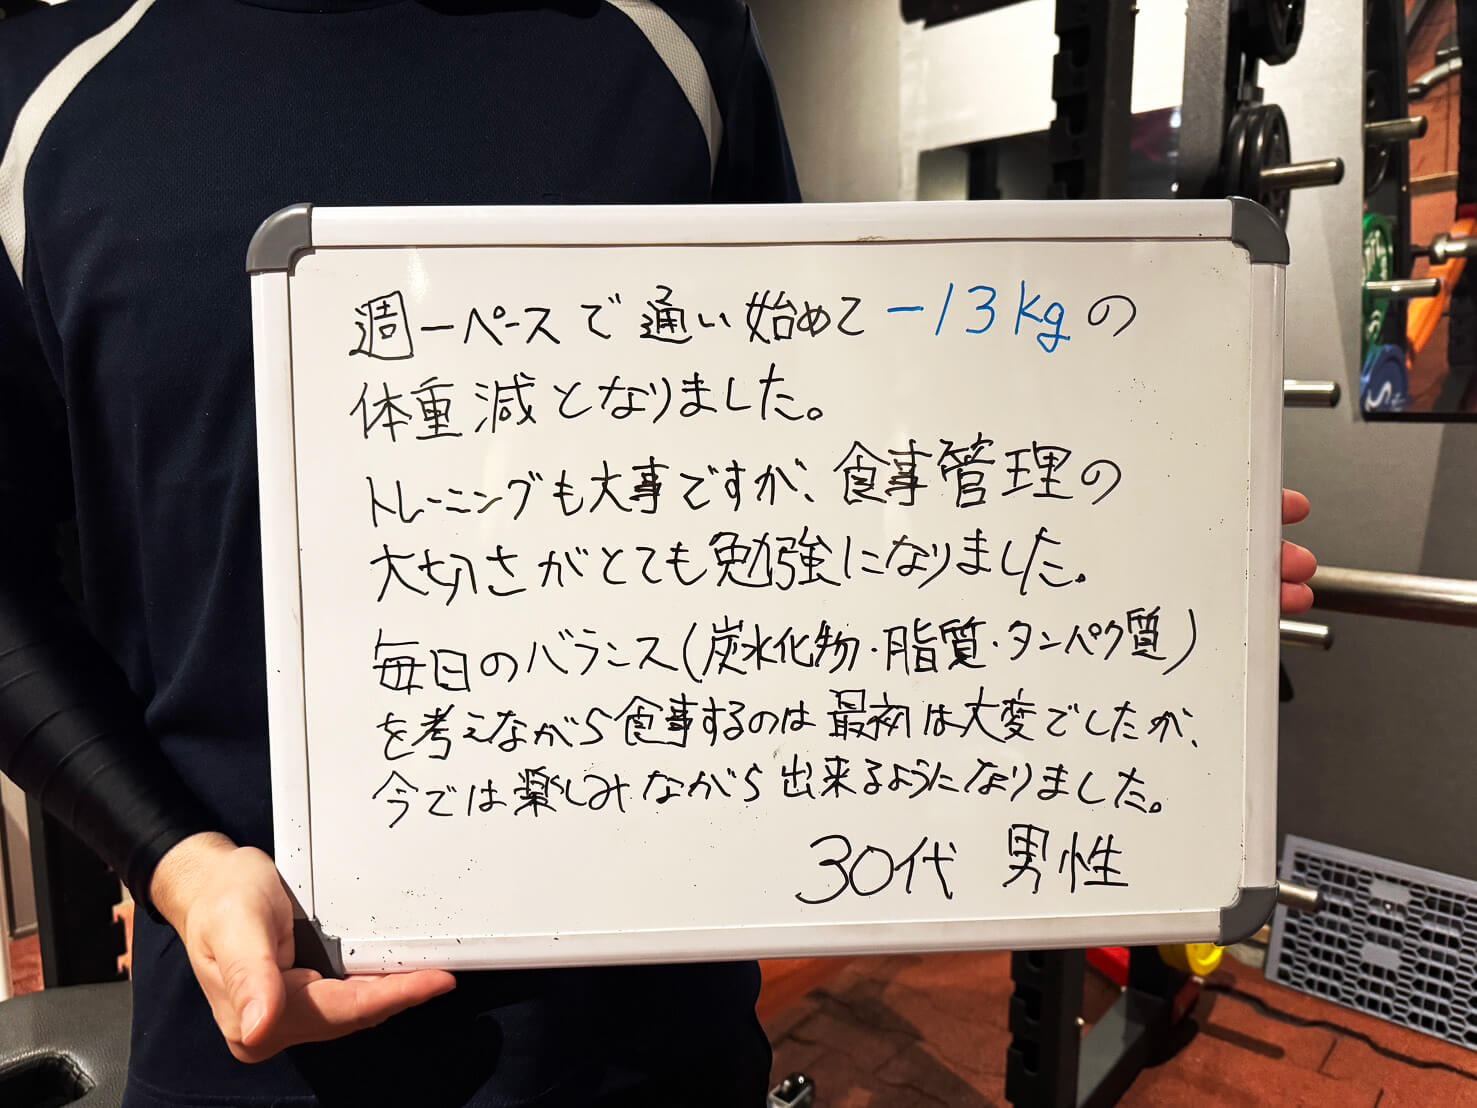 週一ペースで通い始めて-13kgの
体重減となりました。
トレーニングも大事ですが、食事管理の
大切さがとても勉強になりました。
毎日のバランス(炭水化物・脂質・タンパク質)
を考えながら食事するのは最初は大変でしたが、
今では楽しみながら出来るようになりました。
30代 男性